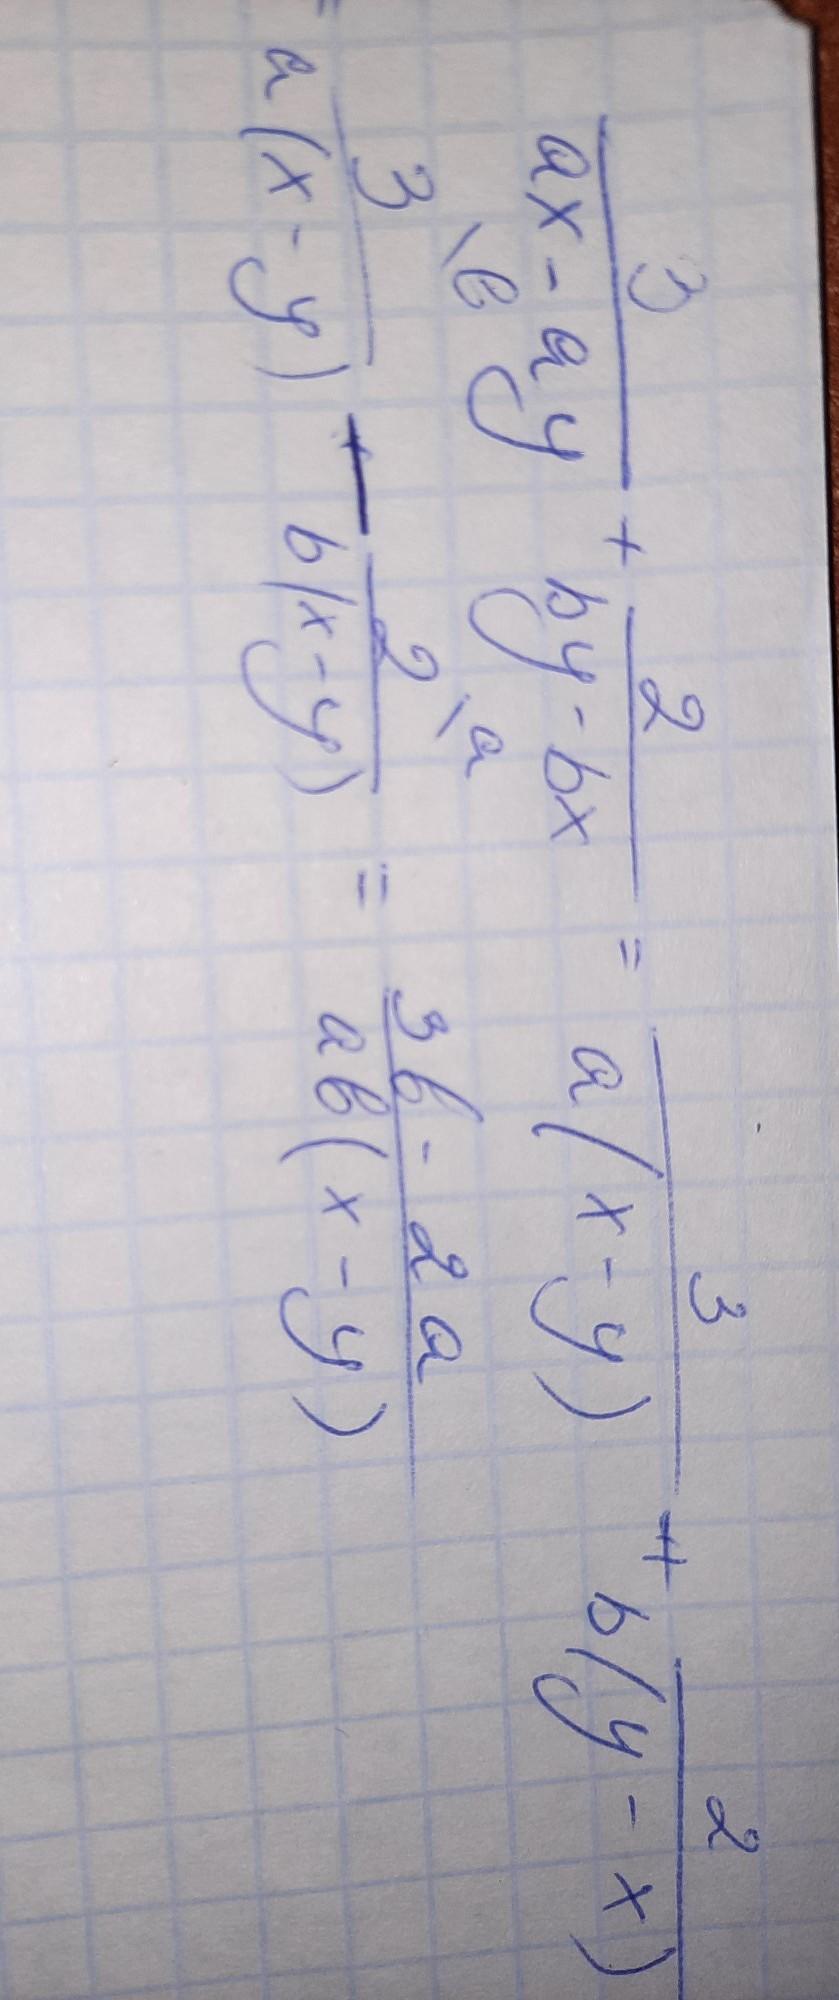 3/(ax - ay) + 2/(by - bx) = 3/(a(x - y)) + 2/(b(y - x))
= 3\в/(a(x - y)) - 2\a/(b(x - y)) = (3в - 2a)/(aв(x - y))